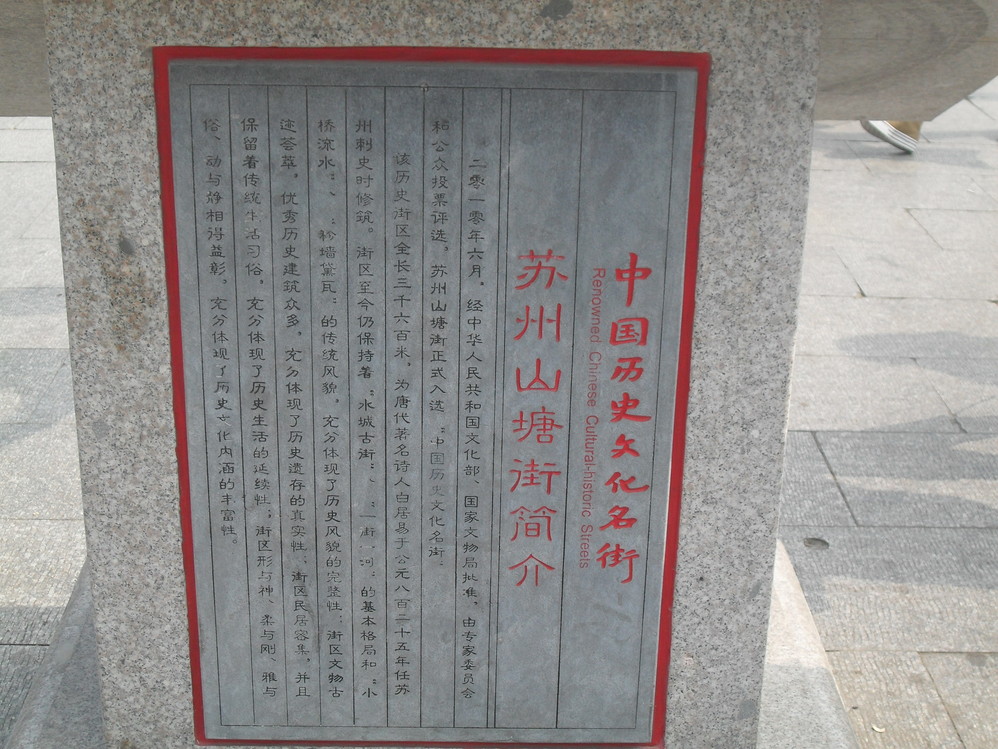 中国历史文化名街
Renowned Chinese Cultural-historic Streets
苏州山塘街简介
二零一零年六月，经中华人民共和国文化部、国家文物局批准，由专家委员会
和公众投票评选，苏州山塘街正式入选“中国历史文化名街”
该历史街区全长三千六百米，为唐代著名诗人白居易于公元八百二十五年任苏
州刺史时修筑。街区至今仍保持着“水城古街”、“一街一河”的基本格局和“小
桥流水”、“粉墙黛瓦”的传统风貌，充分体现了历史风貌的完整性；街区文物古
迹荟萃，优秀历史建筑众多，充分体现了历史遗存的真实性；街区民居密集，并且
保留着传统生活习俗，充分体现了历史生活的延续性；街区形与神、柔与刚、雅与
俗、动与静相得益彰，充分体现了历史文化内涵的丰富性。